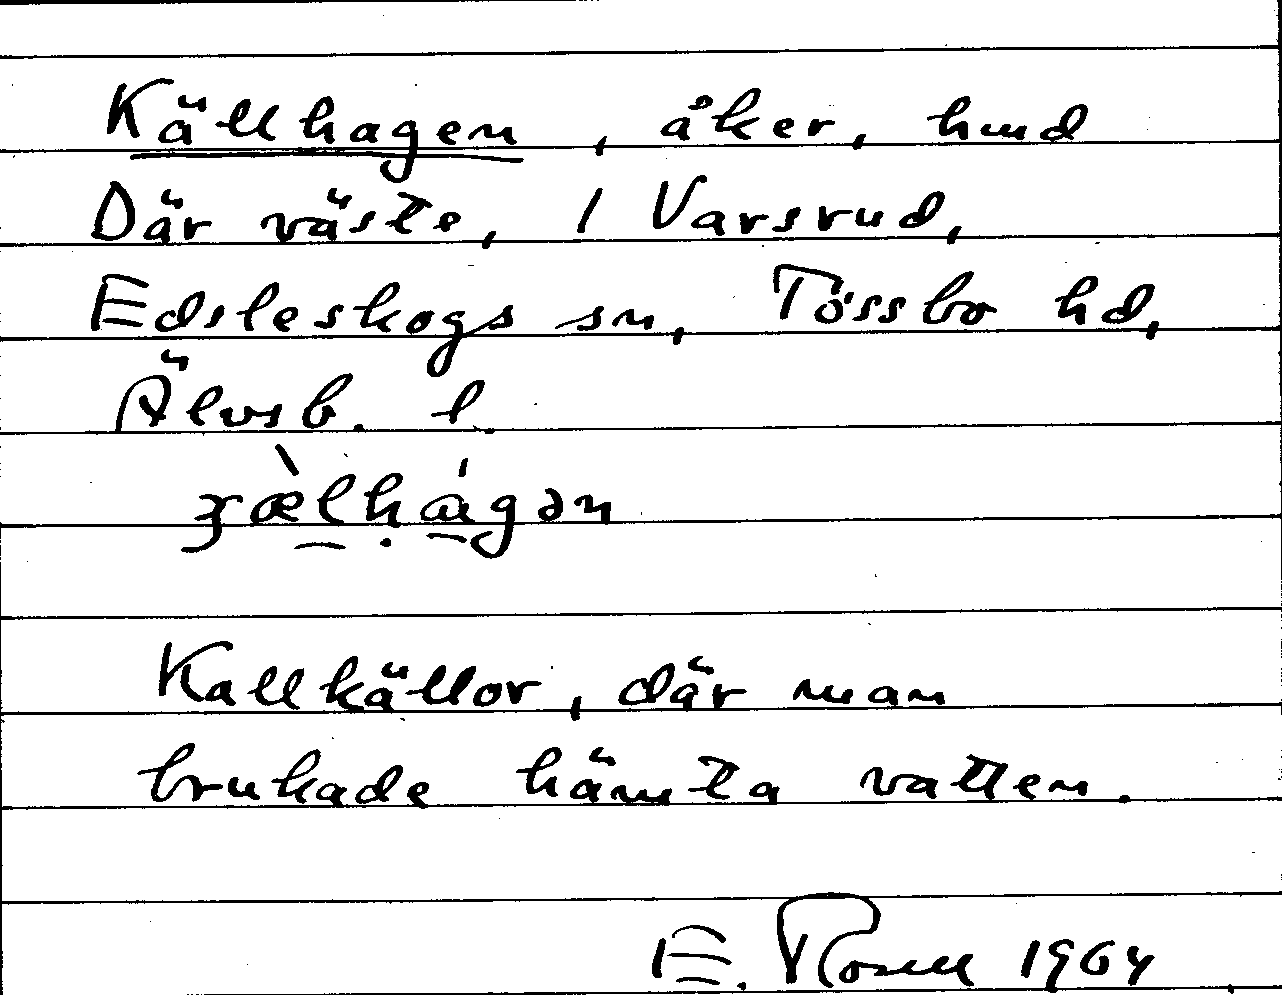 Källhagen, åker, hmd
Där väste, 1 Varsrud,
Edsleskogs sn, Tössbo hd,
Älvsb. l.
Kallkällor, där man
brukade hämta vatten.
E. Rosell 1964